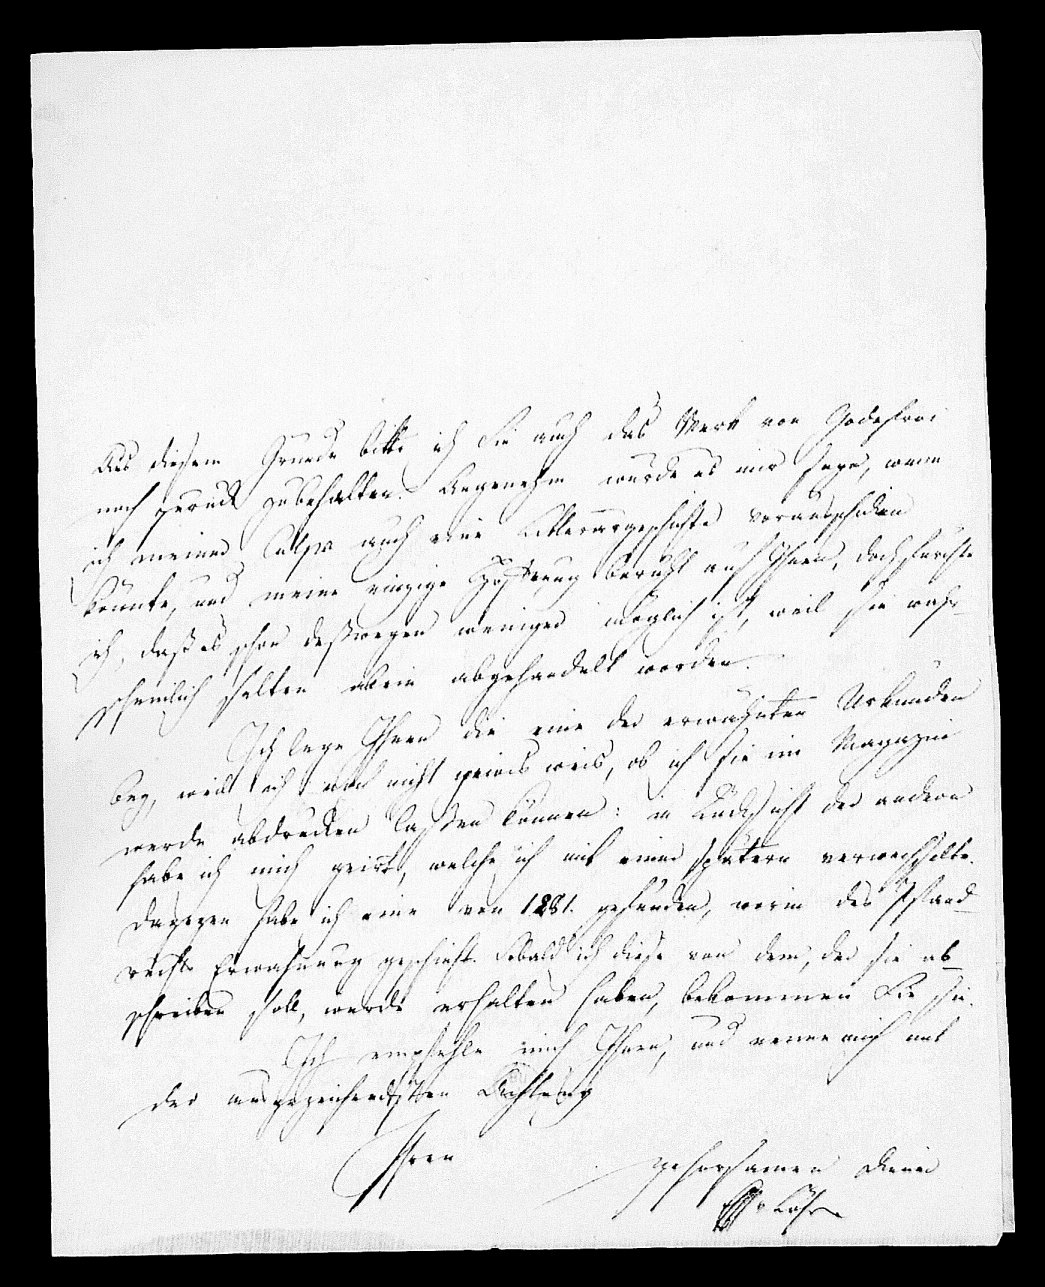 Aus diesem Grunde bitte ich Sie auch das Werk von Godefroi
noch zurück zubehalten. Angenehm würde es mir seyn, wenn
ich meiner Culpa auch eine Litterärgeschichte vorausschicken
könnte, und meine einzige Hoffnung beruht auf Ihnen, doch fürchte
ich, daß es schon deßwegen weniger möglich ist, weil sie wahr-
scheinlich selten allein abgehandelt worden.
Ich lege Ihnen die eine der erwähnten Urkunden
bey, weil ich nicht gewis weis, ob ich sie im Magazin
werde abdrucken lassen können: in Rücksicht der andern
habe ich mich geirrt, welche ich mit einer spätern verwechselte.
Dagegen habe ich eine von 1281. gefunden, worin des Pfand-
rechts Erwähnung geschieht. Sobald ich diese von dem, der sie ab-
schreiben soll, werde erhalten haben, bekommen Sie sie.
Ich empfehle mich Ihnen, und nenne mich mit
der ausgezeichnetsten Achtung
Ihren
gehorsamen Diener
Löhr